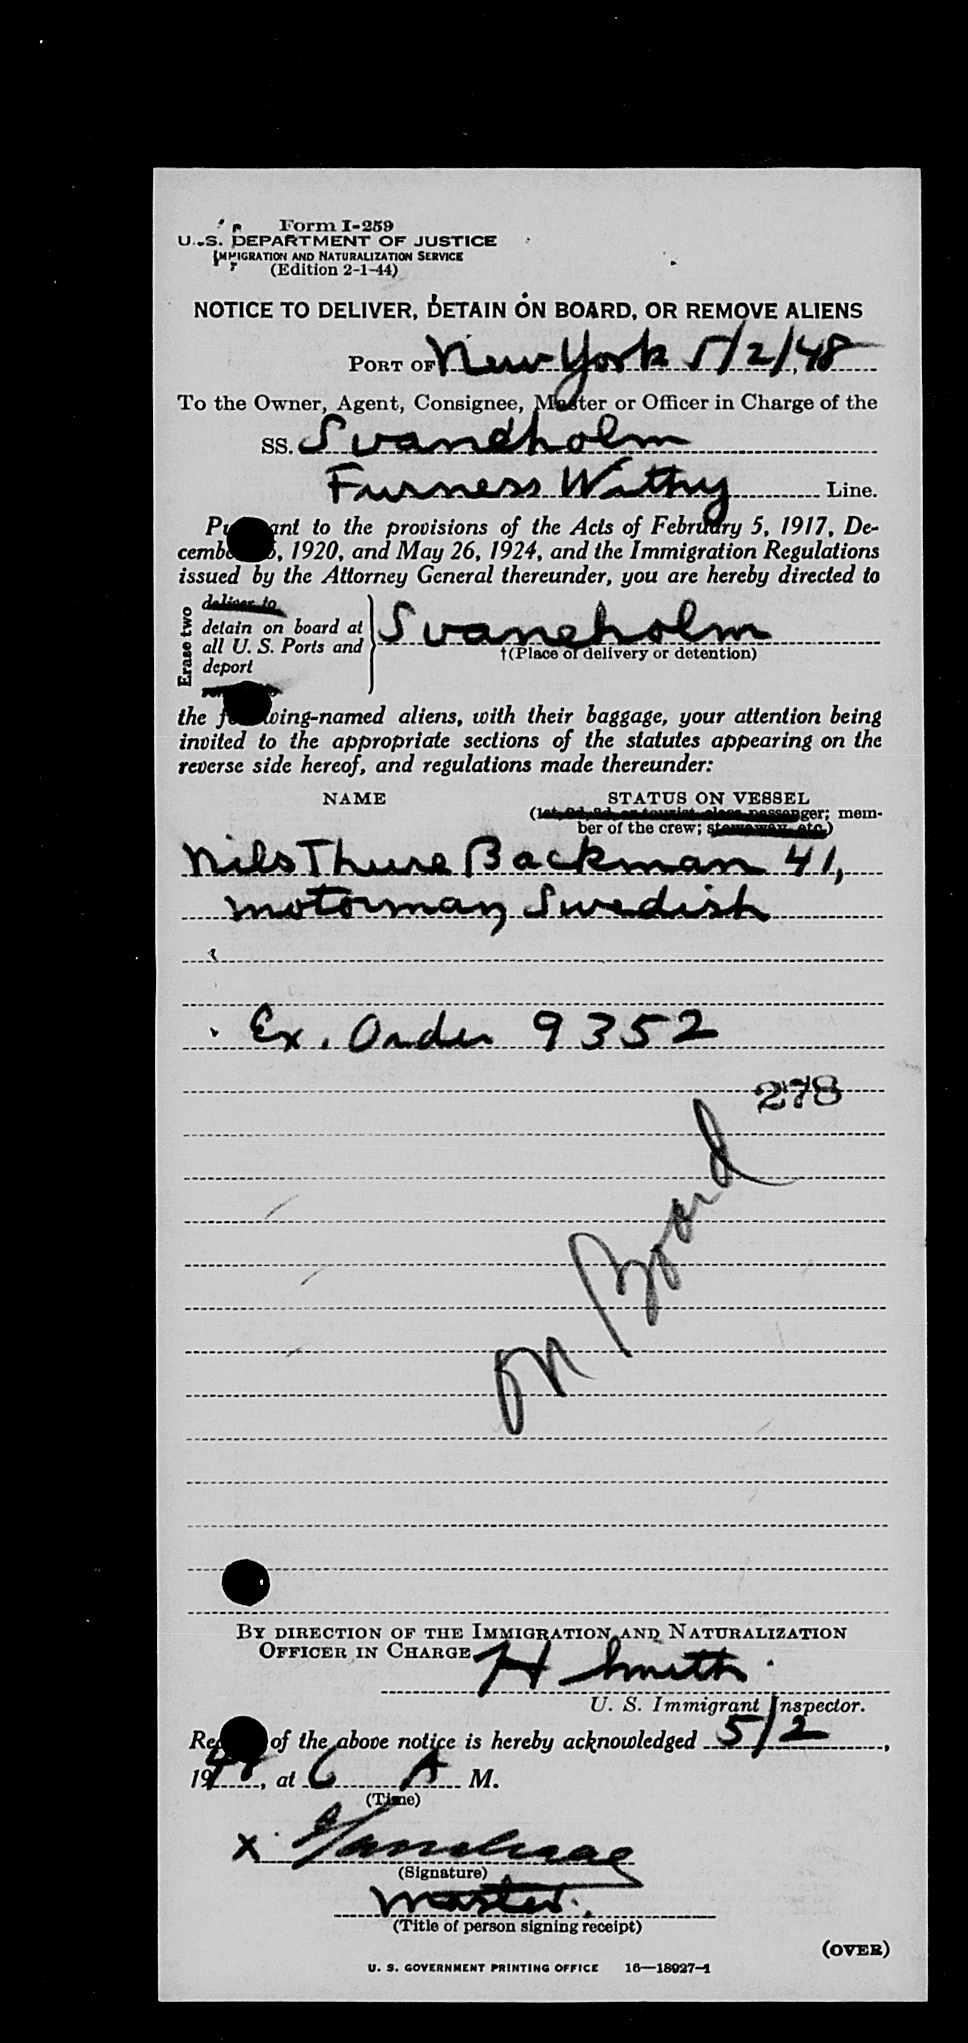 Form I-259
U. S. DEPARTMENT OF JUSTICE
IMMIGRATION AND NATURALIZATION SERVICE
(Edition 2-1-44)
NOTICE TO DELIVER, DETAIN ON BOARD, OR REMOVE ALIENS
PORT OF New York 5/2/, 48
To the Owner, Agent, Consignee, Master or Officer in Charge of the
SS. Svaneholm
Furness Withy Line.
Pursuant to the provisions of the Acts of February 5, 1917, De-
cember 5, 1920, and May 26, 1924, and the Immigration Regulations
issued by the Attorney General thereunder, you are hereby directed to
Erase two
deliver to
detain on board at
all U. S. Ports and
deport
Svaneholm
†(Place of delivery or detention)
the following-named aliens, with their baggage, your attention being
invited to the appropriate sections of the statutes appearing on the
reverse side hereof, and regulations made thereunder:
NAME STATUS ON VESSEL
(1st, 2d, 3d, or tourist class passenger; mem-
ber of the crew; stowaway, etc.)
Nils Thure Backman 41,
motorman, Swedish
Ex. Order 9352
278
on Board
BY DIRECTION OF THE IMMIGRATION AND NATURALIZATION
OFFICER IN CHARGE
H Smith
U. S. Immigrant Inspector.
Receipt of the above notice is hereby acknowledged 5/2,
1948, at 6 A M.
(Time)
X
(Signature)
Master.
(Title of person signing receipt)
(OVER)
U. S. GOVERNMENT PRINTING OFFICE 16—18927-1